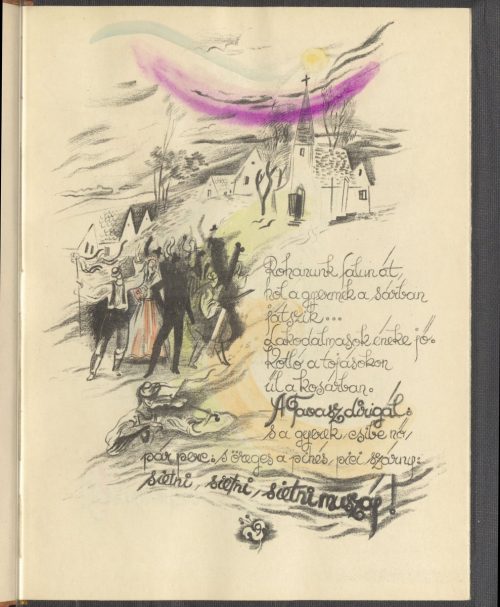 Rohanunk falun át,
hol a gyermek a sárban
játszik...
Lakodalmasok éneke jő.
Kotló a tojásokon
ül a kosárban.
A Tavasz dirigál:
s a gyerek, csibe nő,
pár perc: s öreges a pihés, pici szárny:
sietni, sietni, sietni muszáj!